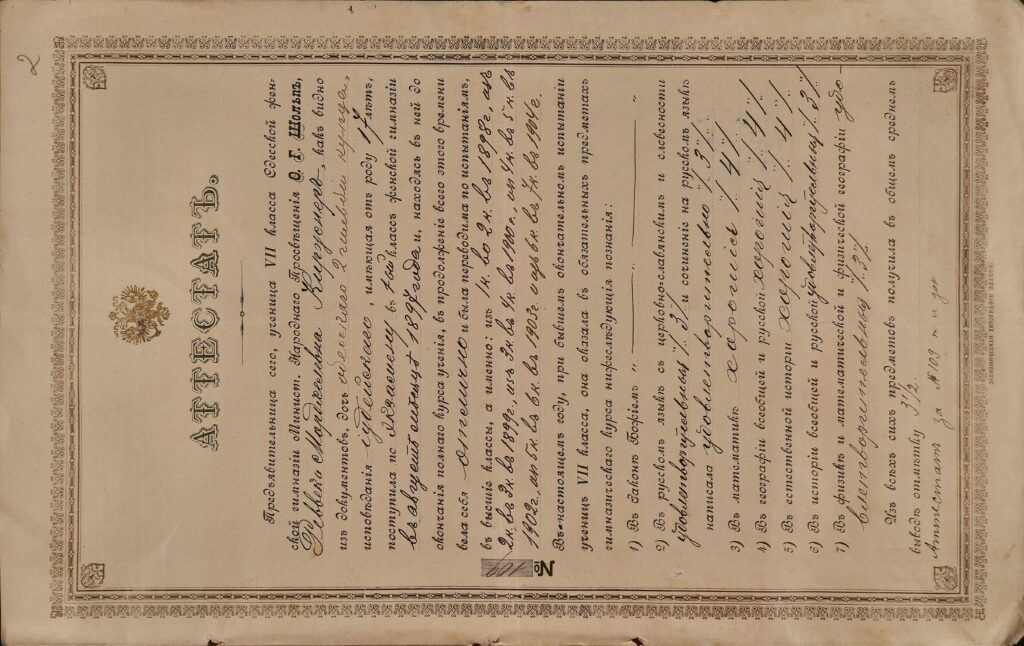 2
АТТЕСТАТЪ.
Предъявительница сего, ученица VII класса Одесской жен-
ской гимназіи Минист. Народнаго Просвѣщенія О. Г. Шольпъ,
Ревекка Мордковна, какъ видно
изъ документовъ, дочь одесскаго 2 гильдіи купца,
исповѣданія іудейскаго, имѣющая отъ роду 17 лѣтъ,
поступила по экзамену въ 1ый классъ женской гимназіи
въ августѣ мѣсяцѣ 1897 года и, находясь въ ней до
окончанія полнаго курса ученія, въ продолженіе всего этого времени
вела себя отлично и была переводима по испытаніямъ,
въ высшіе классы, а именно: изъ 1 к. во 2 к. въ 1898 г., изъ
2 к. въ 3 к. въ 1899 г., изъ 3 к. въ 4 к. въ 1900 г., изъ 4 к. въ 5 к. въ
1902 г., изъ 5 к. въ 6 к. въ 1903 г. изъ 6 к. въ 7 к. въ 1904 г.
Въ настоящемъ году, при бывшемъ окончательномъ испытаніи
ученицъ VII класса, она оказала въ обязательныхъ предметахъ
гимназическаго курса нижеслѣдующія познанія:
1) Въ Законѣ Божіемъ " ——— " ——— "
2) Въ русскомъ языкѣ съ церковно-славянскимъ и словесности
удовлетворительныя /.3./ и сочиненіе на русскомъ языкѣ
написала удовлетворительно /.3./
3) Въ математикѣ хорошія /.4./
4) Въ географіи всеобщей и русской хорошія /.4./
5) Въ естественной исторіи хорошія /.4./
6) Въ исторіи всеобщей и русской удовлетворительныя /.3./
7) Въ физикѣ и математической и физической географіи удо-
влетворительныя /.3./
Изъ всѣхъ сихъ предметовъ получила въ общемъ среднемъ
выводѣ отмѣтку 3 1/2.
Аттестатъ за № 109
№ 109